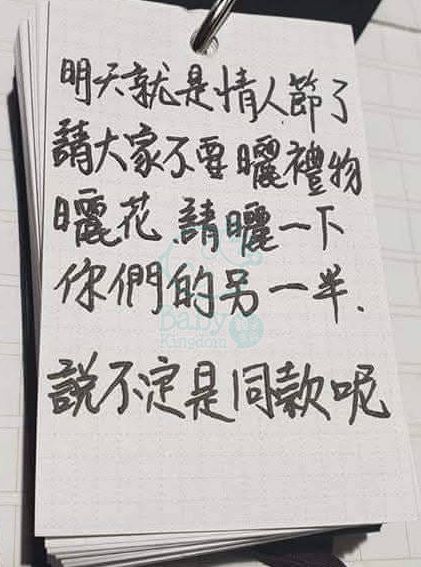 明天就是情人節了
請大家不要曬禮物
曬花、請曬一下
你們的另一半、
說不定是同款呢
Baby
Kingdom